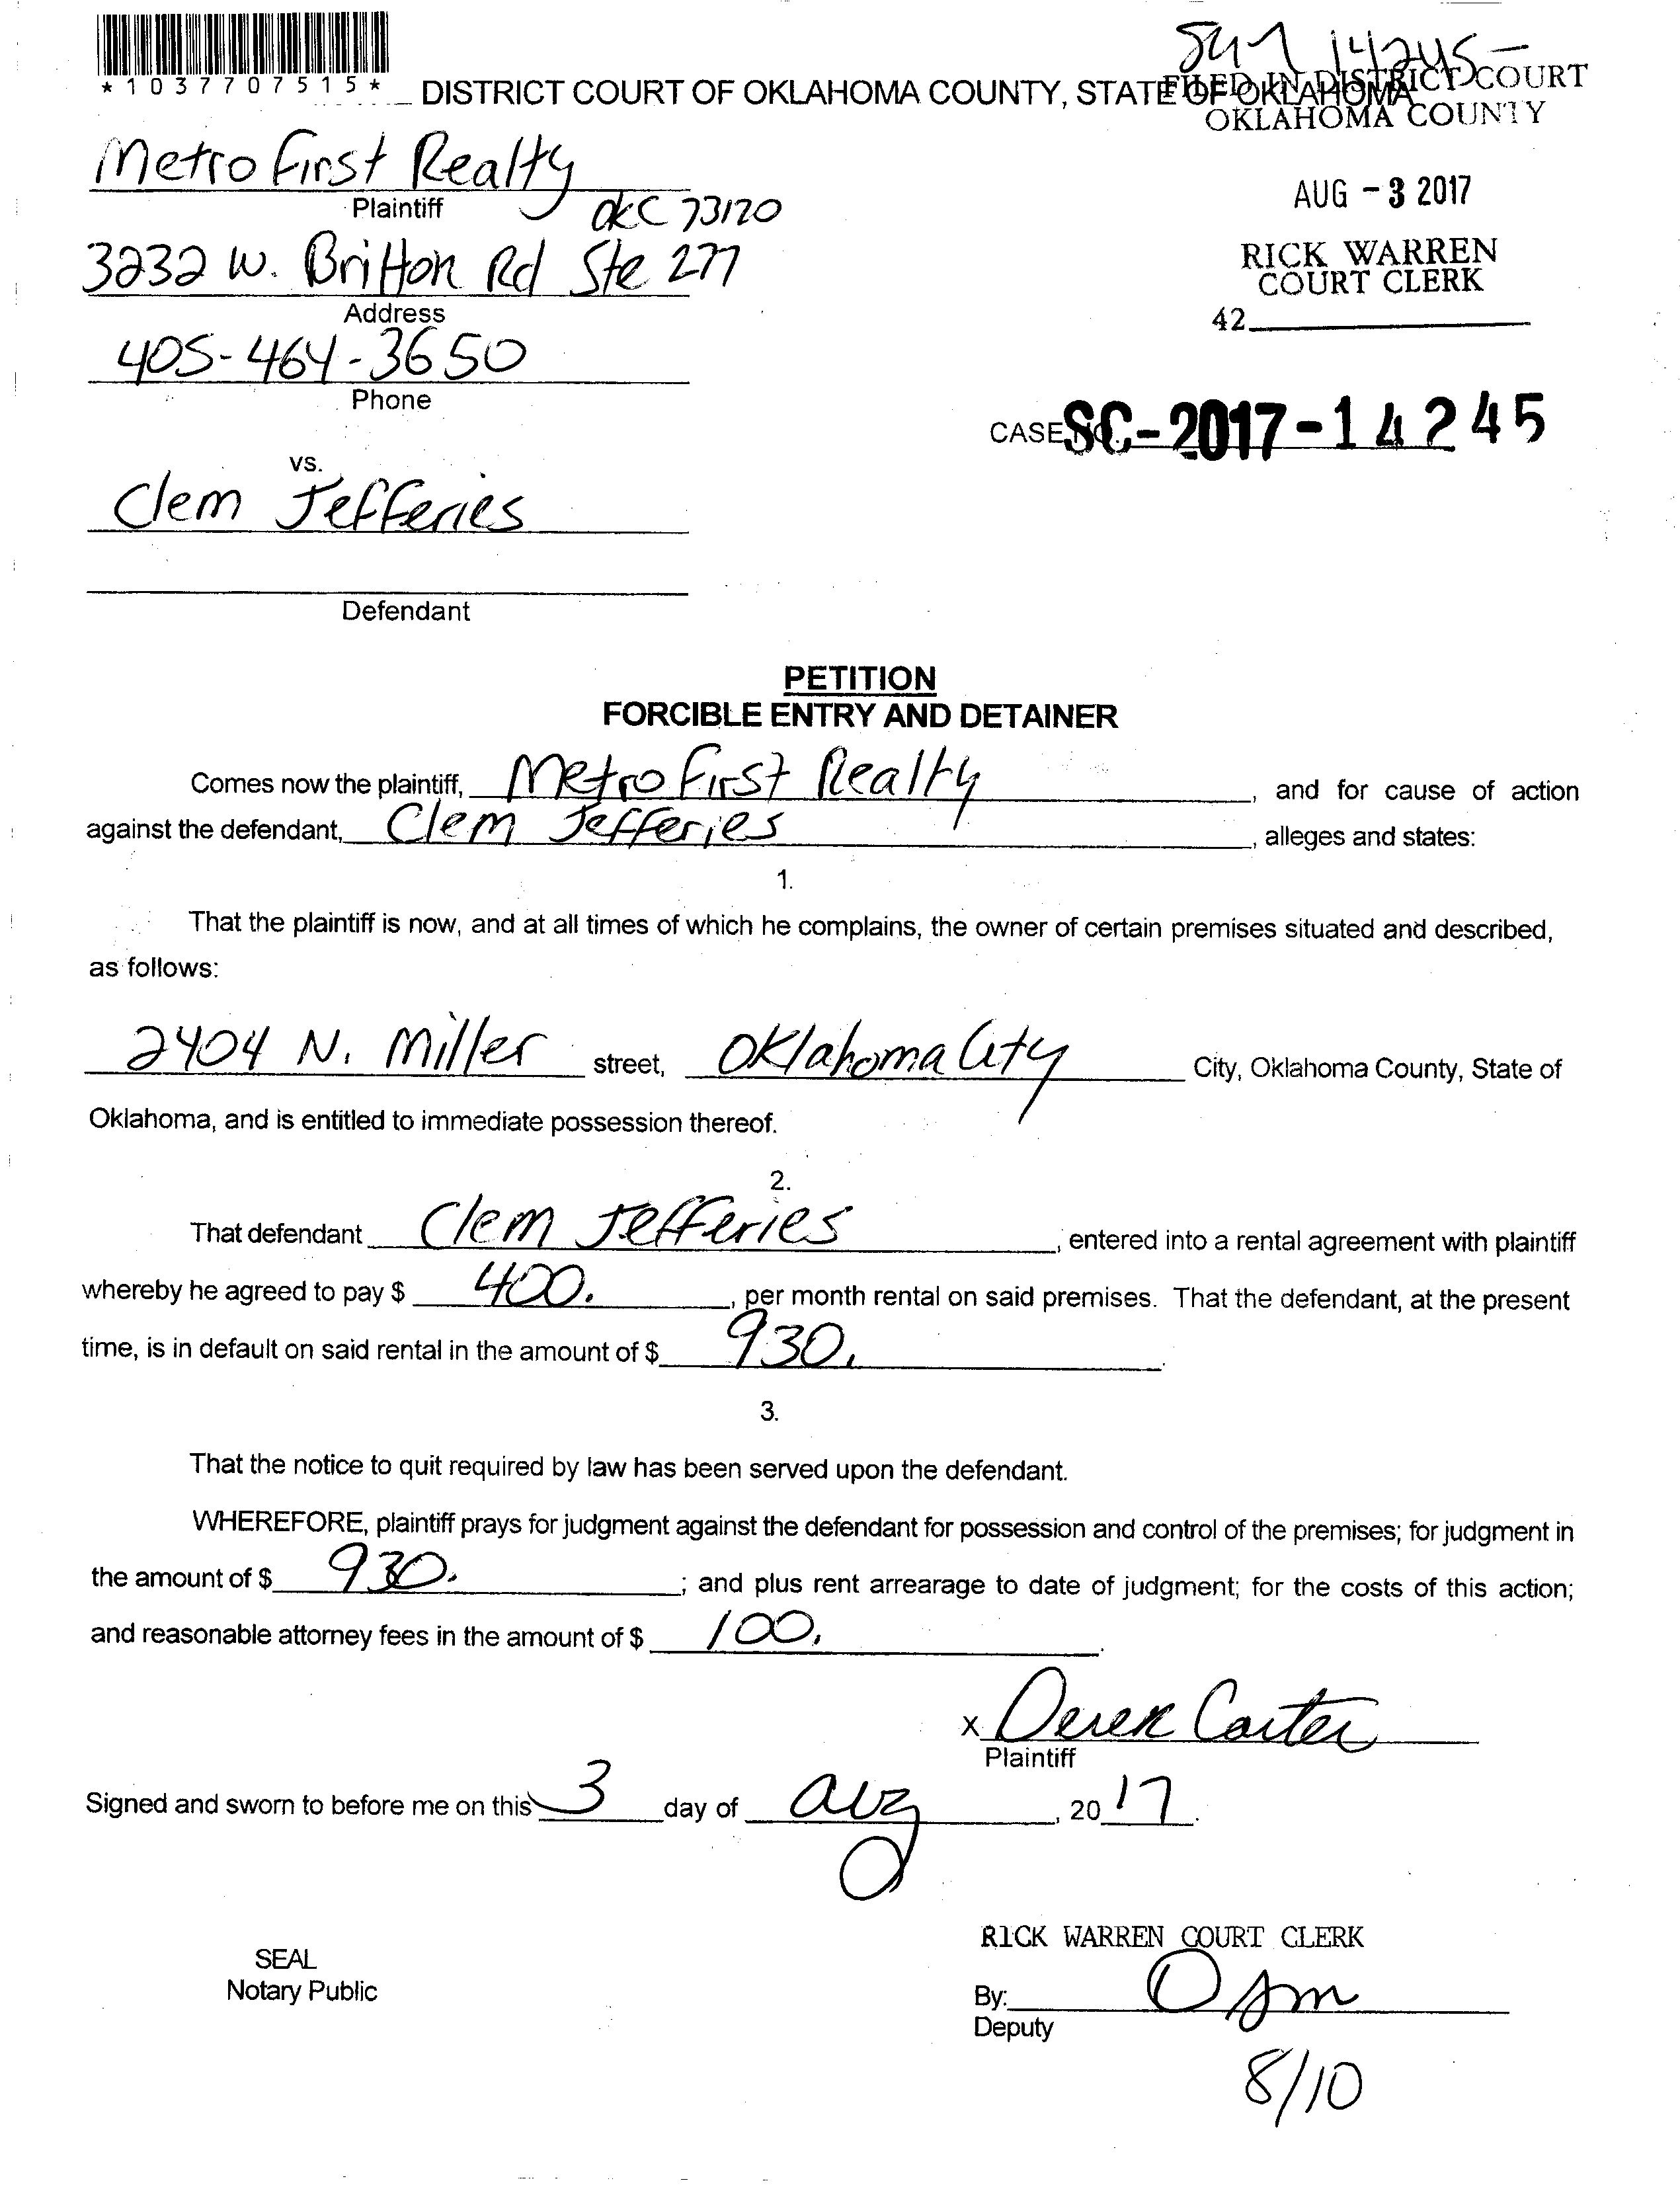 *1037707515*
DISTRICT COURT OF OKLAHOMA COUNTY, STATE OF OKLAHOMA
14245-
FILED IN DISTRICT COURT
OKLAHOMA COUNTY
Metro First Realty
Plaintiff
OKC 73120
AUG - 3 2017
3232 W. Britton Rd Ste 277
Address
RICK WARREN
COURT CLERK
42
405-464-3650
Phone
CASE NO. SC-2017-14245
vs.
Clem Jefferies
Defendant
PETITION
FORCIBLE ENTRY AND DETAINER
Comes now the plaintiff, Metro First Realty, and for cause of action
against the defendant, Clem Jefferies, alleges and states:
1.
That the plaintiff is now, and at all times of which he complains, the owner of certain premises situated and described,
as follows:
2404 N. Miller street, Oklahoma City City, Oklahoma County, State of
Oklahoma, and is entitled to immediate possession thereof.
2.
That defendant Clem Jefferies, entered into a rental agreement with plaintiff
whereby he agreed to pay $ 400., per month rental on said premises. That the defendant, at the present
time, is in default on said rental in the amount of $ 930.
3.
That the notice to quit required by law has been served upon the defendant.
WHEREFORE, plaintiff prays for judgment against the defendant for possession and control of the premises; for judgment in
the amount of $ 930. ; and plus rent arrearage to date of judgment; for the costs of this action;
and reasonable attorney fees in the amount of $ 100.
x Derek Carter
Plaintiff
Signed and sworn to before me on this 3 day of Aug, 2017.
RICK WARREN COURT CLERK
SEAL
Notary Public
By:
Deputy
8/10